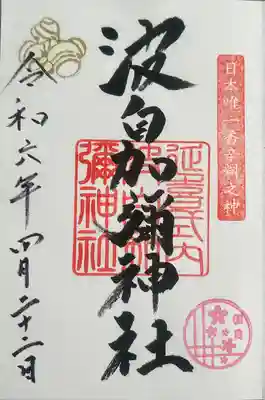 日本唯一香辛調之神
波自加彌神社
延喜式内
波自加
彌神社
令和六年四月二十二日